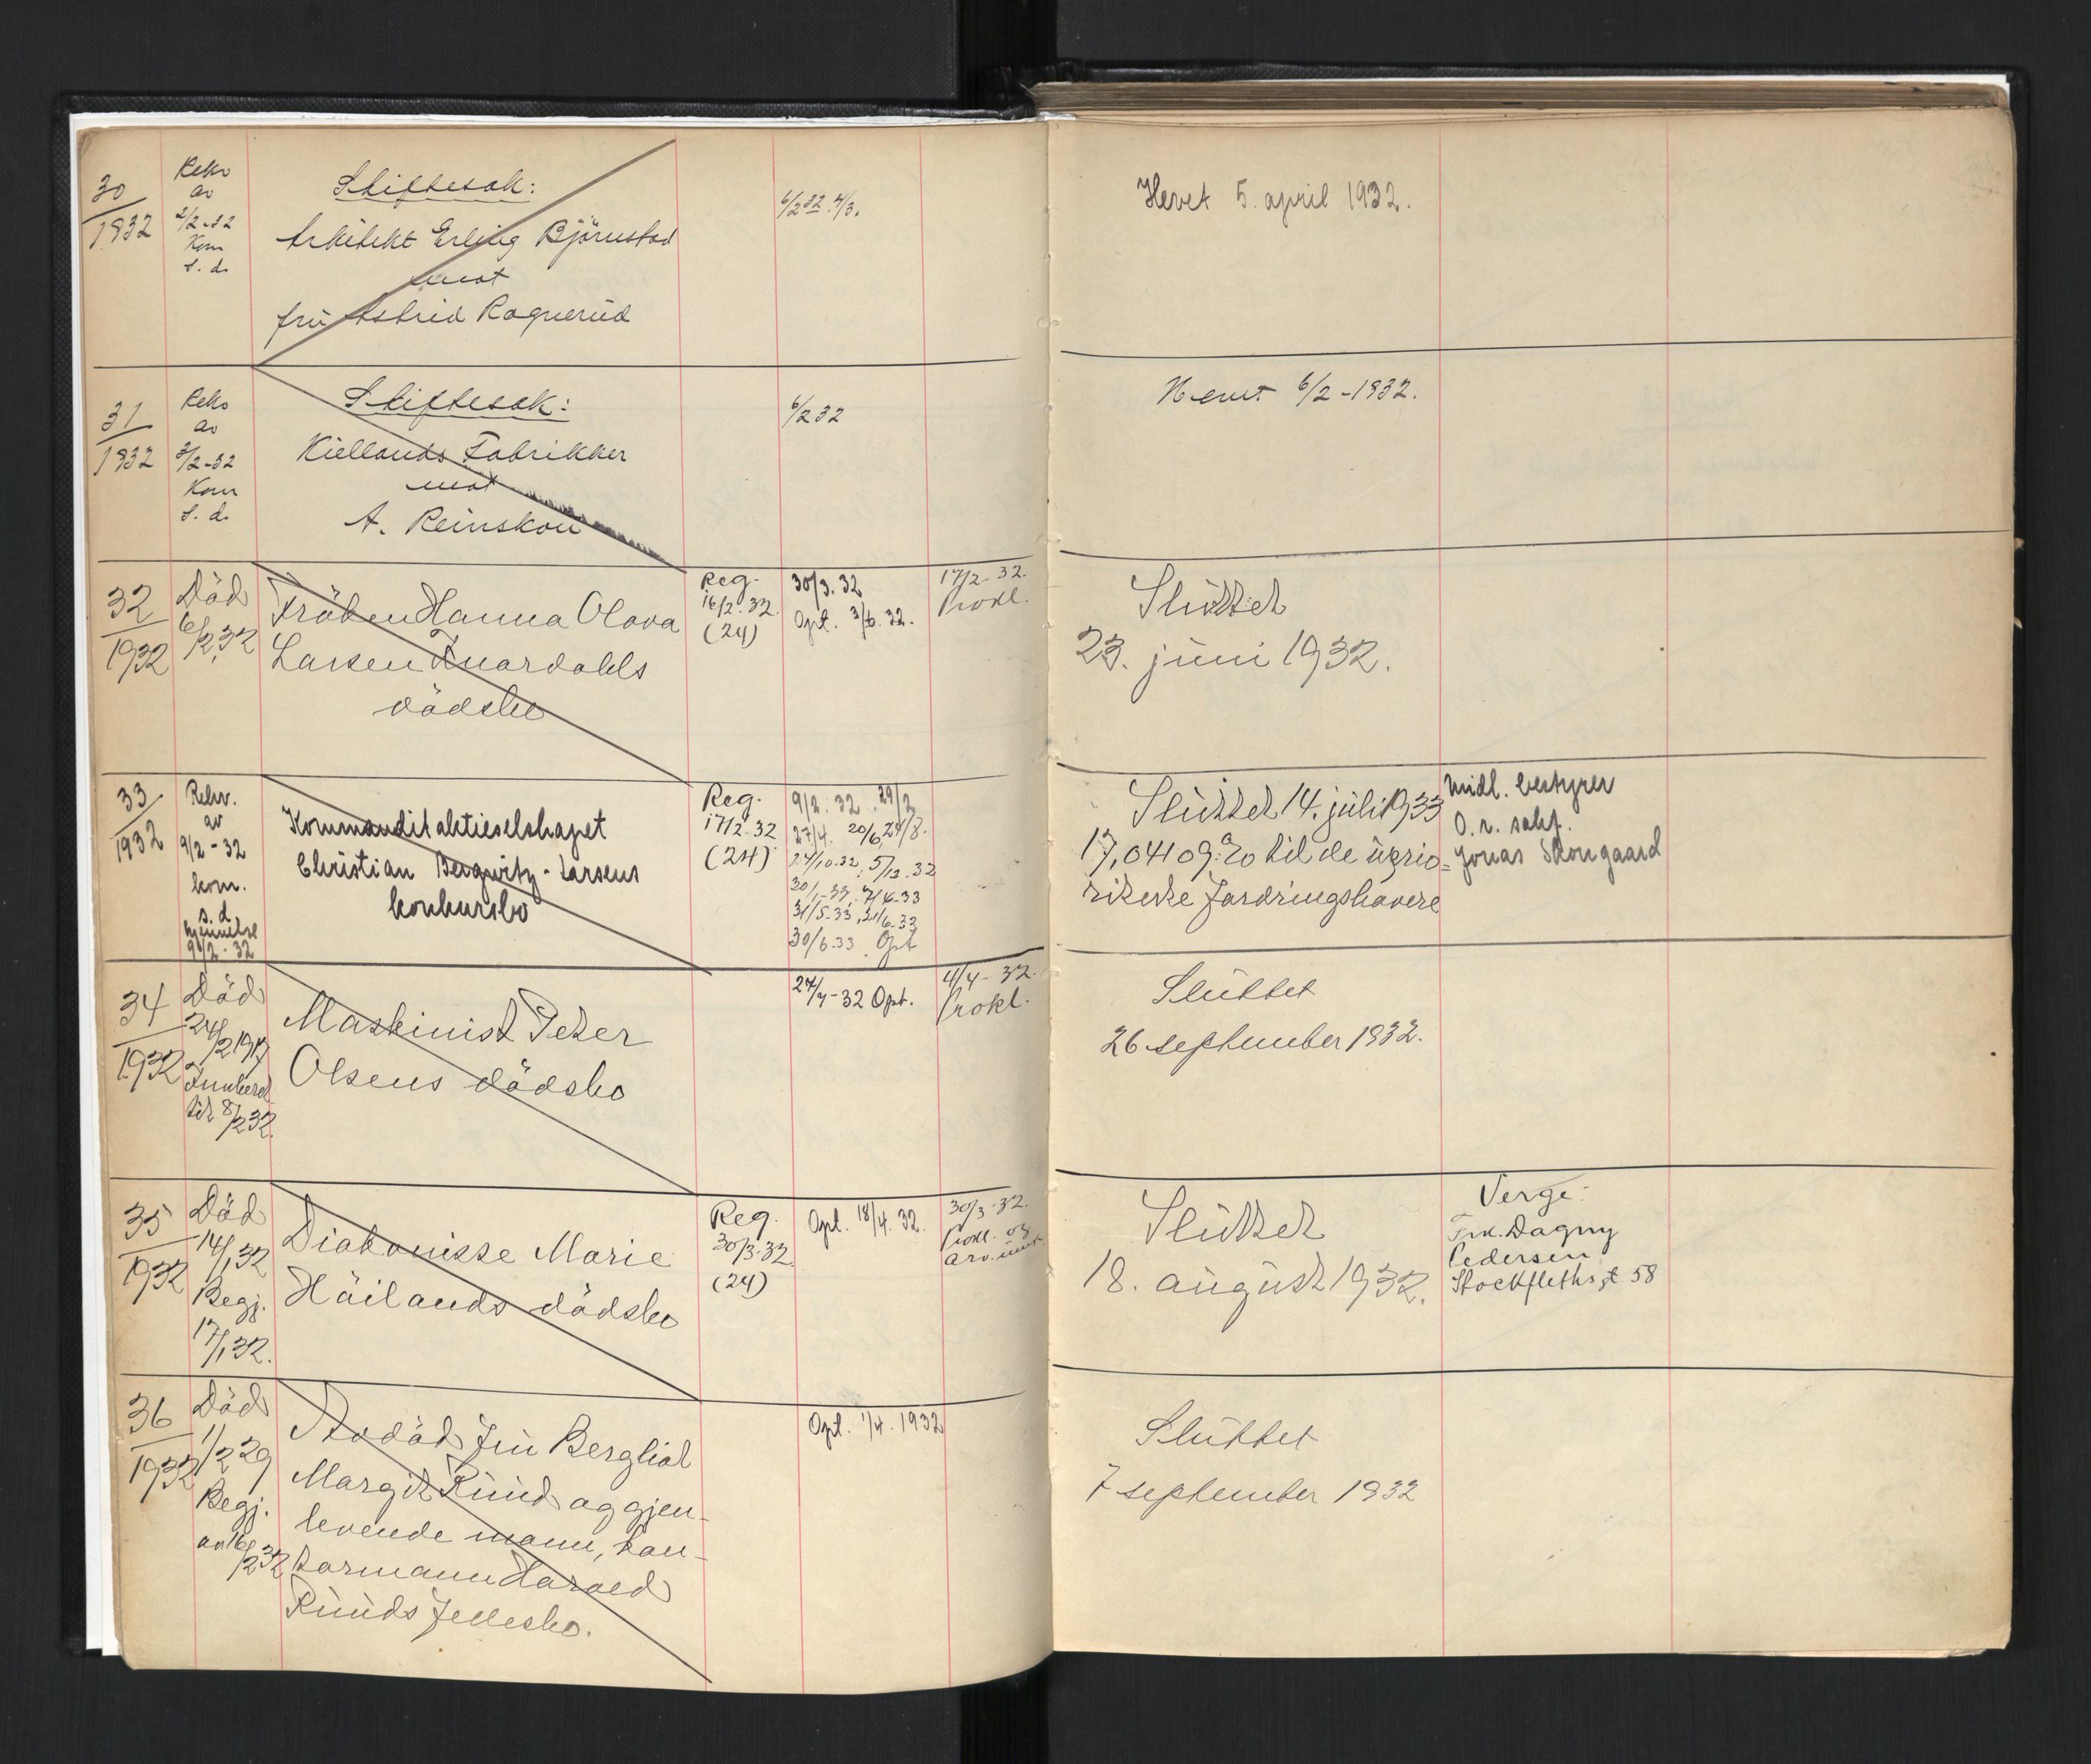 30
1932
Rekv
av
2/2-32
Kom
s. d.
Skiftesak:
Arkitekt Erling Björnstad
mot
fru Astrid Ragnerud
6/2 32. 4/3.
Hevet 5. april 1932.
31
1932
Rekv
av
3/2-32
Kom
s. d.
Skiftesak:
Kiellands Fabrikker
mot
A. Reinskou
6/2 32
Hevet 6/2-1932.
32
1932
Död
6/2 32
Fröken Hanna Olava
Larsen
dödsbo
Reg.
16/2.32.
(24)
30/3.32
Opt. 3/6.32.
17/2-32.
Prokl.
Sluttet
23. juni 1932.
33
1932
Rekv.
av
9/2-32
kom.
s. d.
kjennelse
9/2-32
Kommanditaktieselskapet
Christian Bergwitz-Larsens
konkursbo
Reg.
17/2 32
(24)
9/2.32. 29/2
27/4. 20/6, 24/8.
24/10.32, 5/12.32
20/1-33, 7/4.33
31/5-33, 21/6.33
30/6.33. Opt
Sluttet 14. juli 1933
17,04109 % til de uprio-
riterte fordringshavere
Midl. bestyrer
O.r. sakf.
Jonas Skougaard
34
1932
Död
24/2 1917
Innberet
tet 8/2 32
Maskinist Peter
Olsens dödsbo
27/4-32 Opt.
4/4-32.
Prokl.
Sluttet
26 september 1932.
35
1932
Död
14/1 32
Begj.
17/1 32.
Diakonisse Marie
Häilands dödsbo
Reg.
30/3-32.
(24)
Opt. 18/4.32.
30/3-32.
Prokl. og
Sluttet
18. august 1932.
Verge:
Frk. Dagny
Pedersen
Stockflethsgt 58
36
1932
Död
1/2 29
Begj.
av 16/2 32
Avdöd fru Bergliot
Margit Ruud og gjen-
levende mann, kon-
tormann Harald
Ruuds fellesbo.
Opt. 1/4.1932
Sluttet
7 september 1932